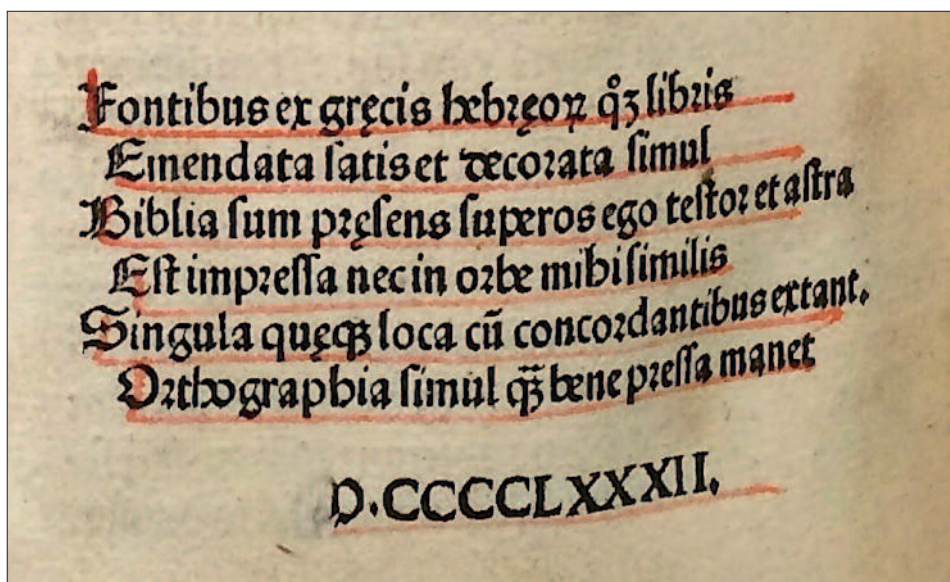 Fontibus ex gręcis hebręoꝝ qͦꝫ libris
Emendata ſatis et decorata ſimul
Biblia ſum pręſens ſuperos ego teſtor et aſtra
Eſt impreſſa nec in orbe mihi ſimilis
Singula quęqꝫ loca cū concordantibus extant.
Orthographia ſimul qꝫ̄ bene preſſa manet
D.CCCCCLXXXII.